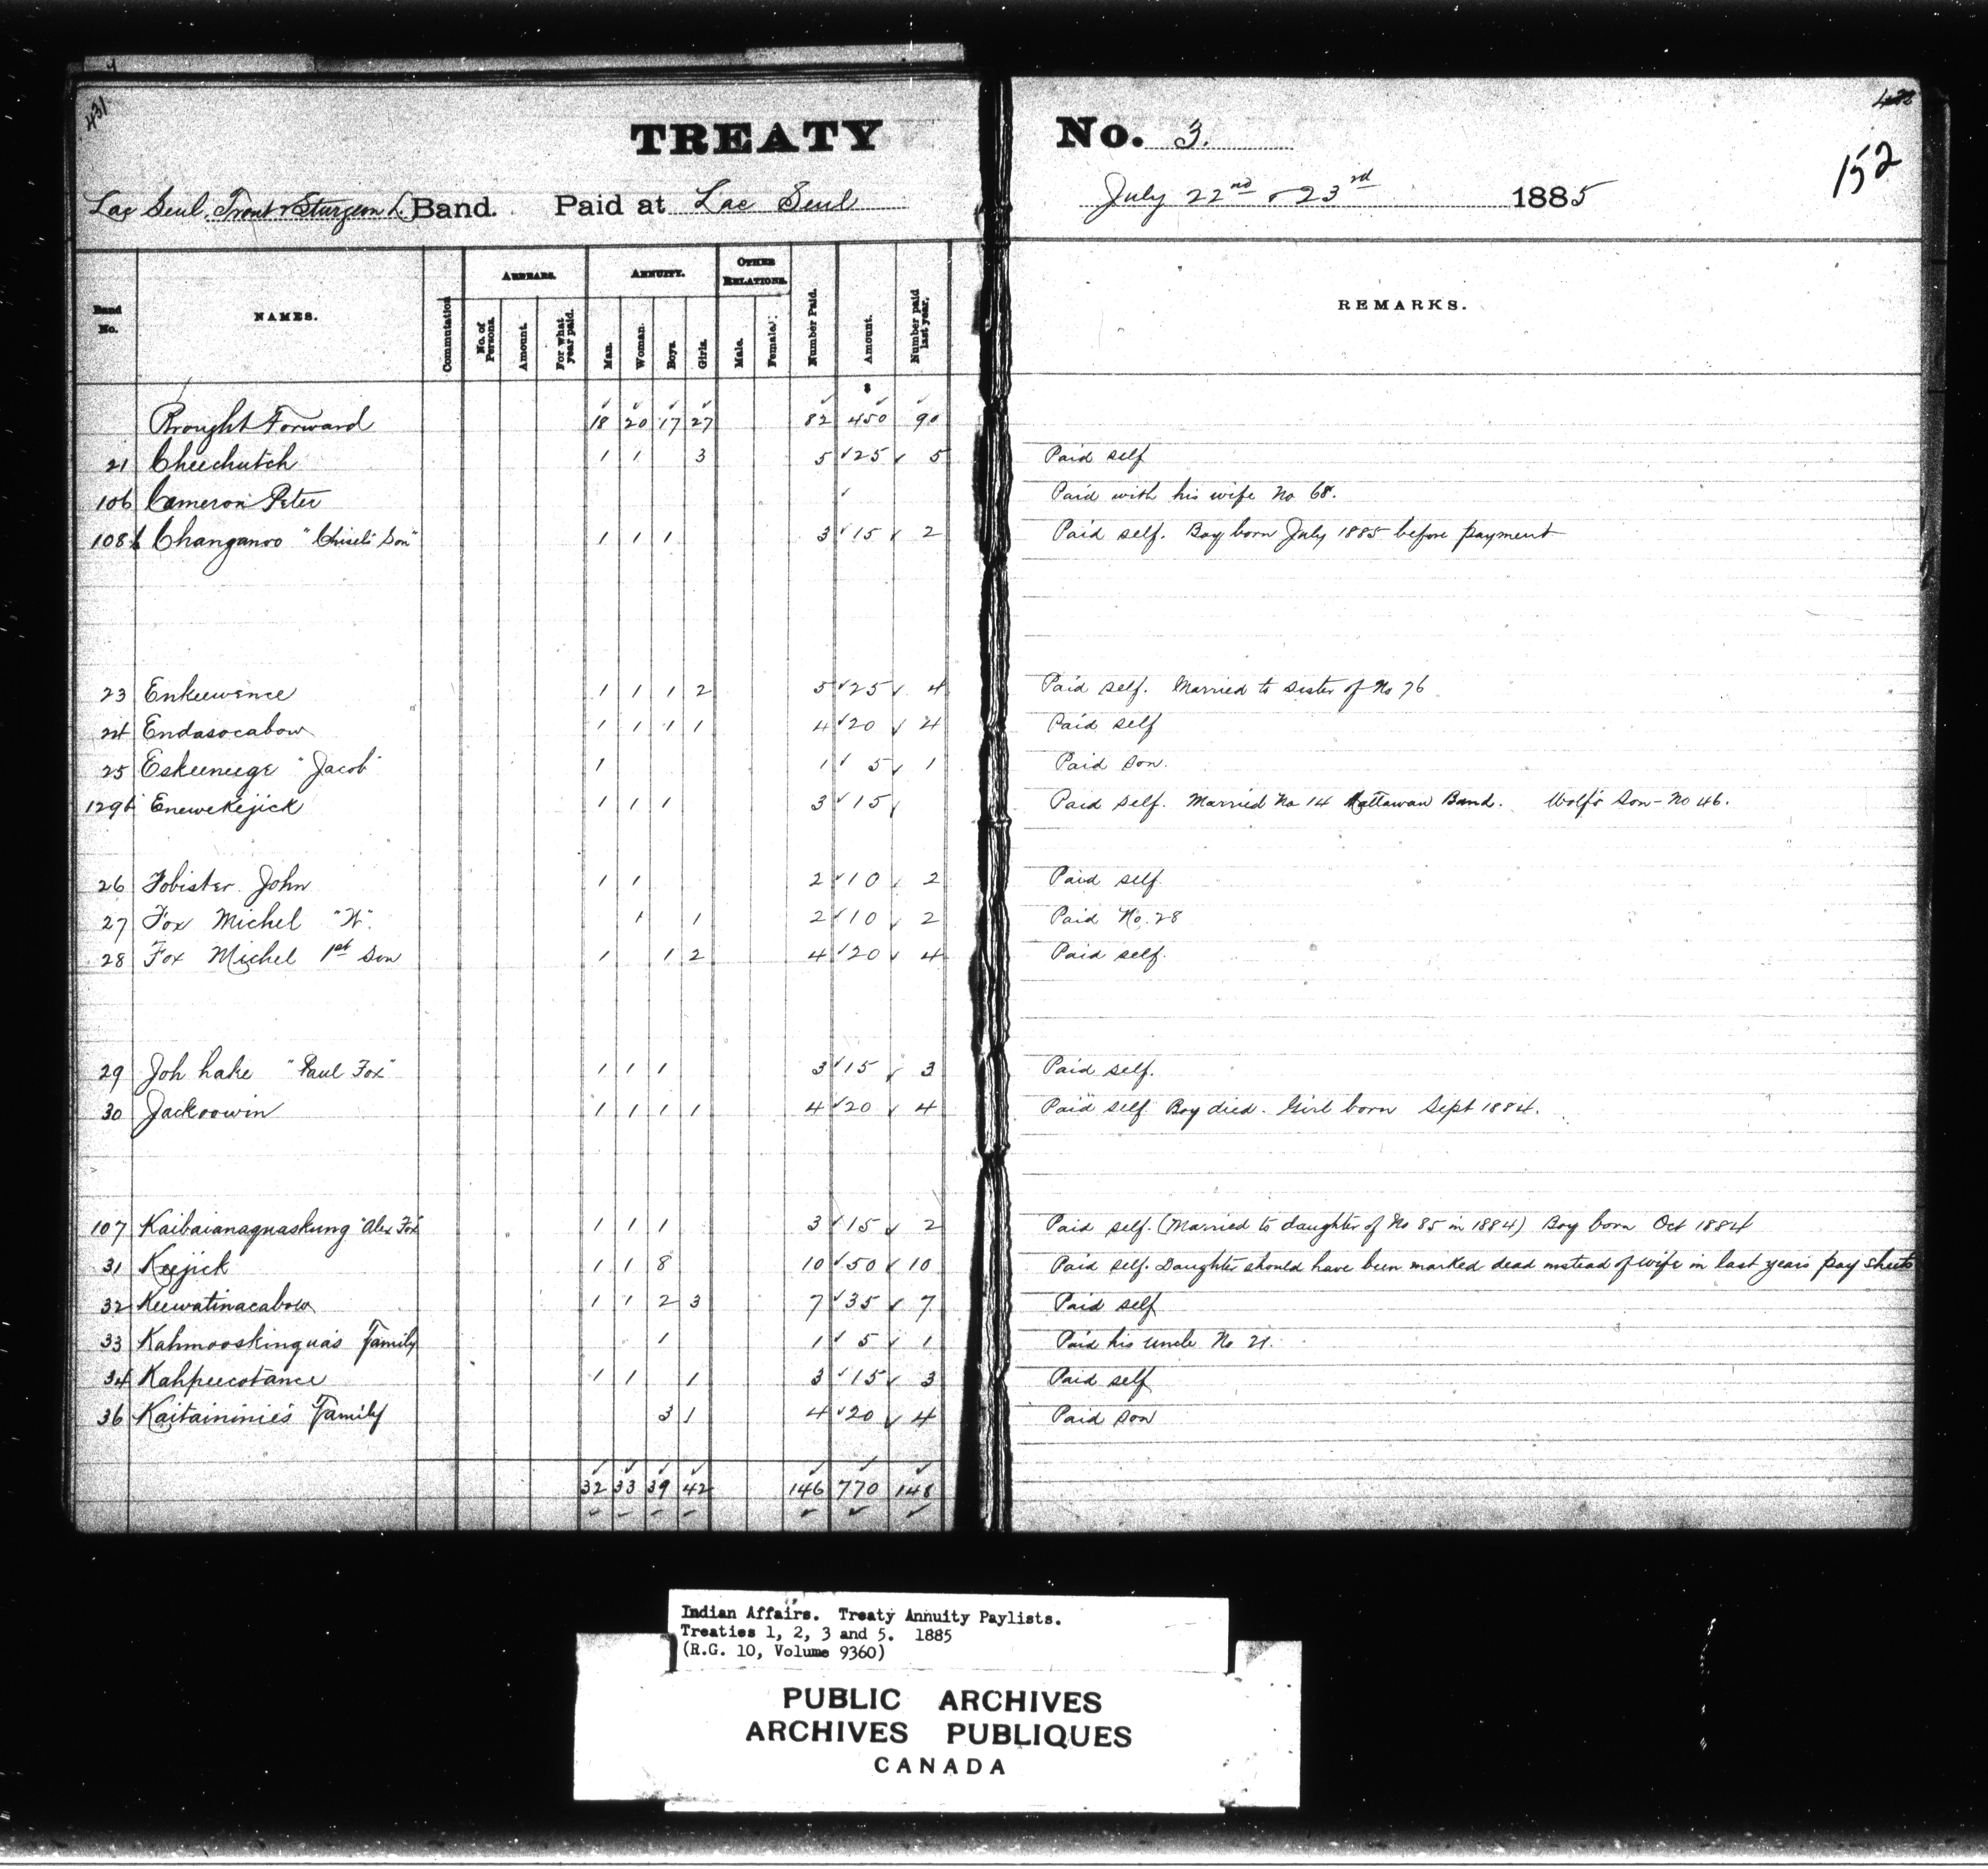 431
TREATY No. 3.
152
Lac Seul, Trout & Sturgeon L. Band. Paid at Lac Seul July 22nd & 23rd 1885
Band No. NAMES. Commutation ARREARS. No. of Persons. Amount. For what year paid. ANNUITY. Man. Woman. Boys. Girls. OTHER RELATIONS. Male. Female. Number Paid. Amount. Number paid last year. REMARKS.
$
Brought Forward 18 20 17 27 82 450 90
21 Cheechutch 1 1 3 5 25 5 Paid self
106 Cameron Peter Paid with his wife No 68.
108 Changanoo "Chisel's Son" 1 1 1 3 15 2 Paid self. Boy born July 1885 before payment
23 Enkeewence 1 1 1 2 5 25 4 Paid self. Married to sister of No 76
24 Endasocabow 1 1 1 1 4 20 4 Paid self
25 Eskeeneege "Jacob" 1 1 5 1 Paid son.
129 Enewekejick 1 1 1 3 15 Paid self. Married No 14 Band. Wolf's Son - No 46.
26 Fobister John 1 1 2 10 2 Paid self.
27 Fox Michel "W". 1 1 2 10 2 Paid No. 28
28 Fox Michel 1st Son 1 1 2 4 20 4 Paid self.
29 Joh hake "Paul Fox" 1 1 1 3 15 3 Paid self.
30 Jackoowin 1 1 1 1 4 20 4 Paid self. Boy died. Girl born Sept 1884.
107 Kaibaianaquaskung "Alex Fox" 1 1 1 3 15 2 Paid self. (Married to daughter of No 85 in 1884) Boy born Oct 1884
31 Keejick 1 1 8 10 50 10 Paid self. Daughter should have been marked dead instead of wife in last years pay sheets
32 Keewatinacabow 1 1 2 3 7 35 7 Paid self
33 Kahmooskinqua's Family 1 1 5 1 Paid his uncle No 21.
34 Kahpeecotance 1 1 1 3 15 3 Paid self
36 Kaitaininie's Family 3 1 4 20 4 Paid son
32 33 39 42 146 770 148
Indian Affairs. Treaty Annuity Paylists.
Treaties 1, 2, 3 and 5. 1885
(R.G. 10, Volume 9360)
PUBLIC ARCHIVES
ARCHIVES PUBLIQUES
CANADA